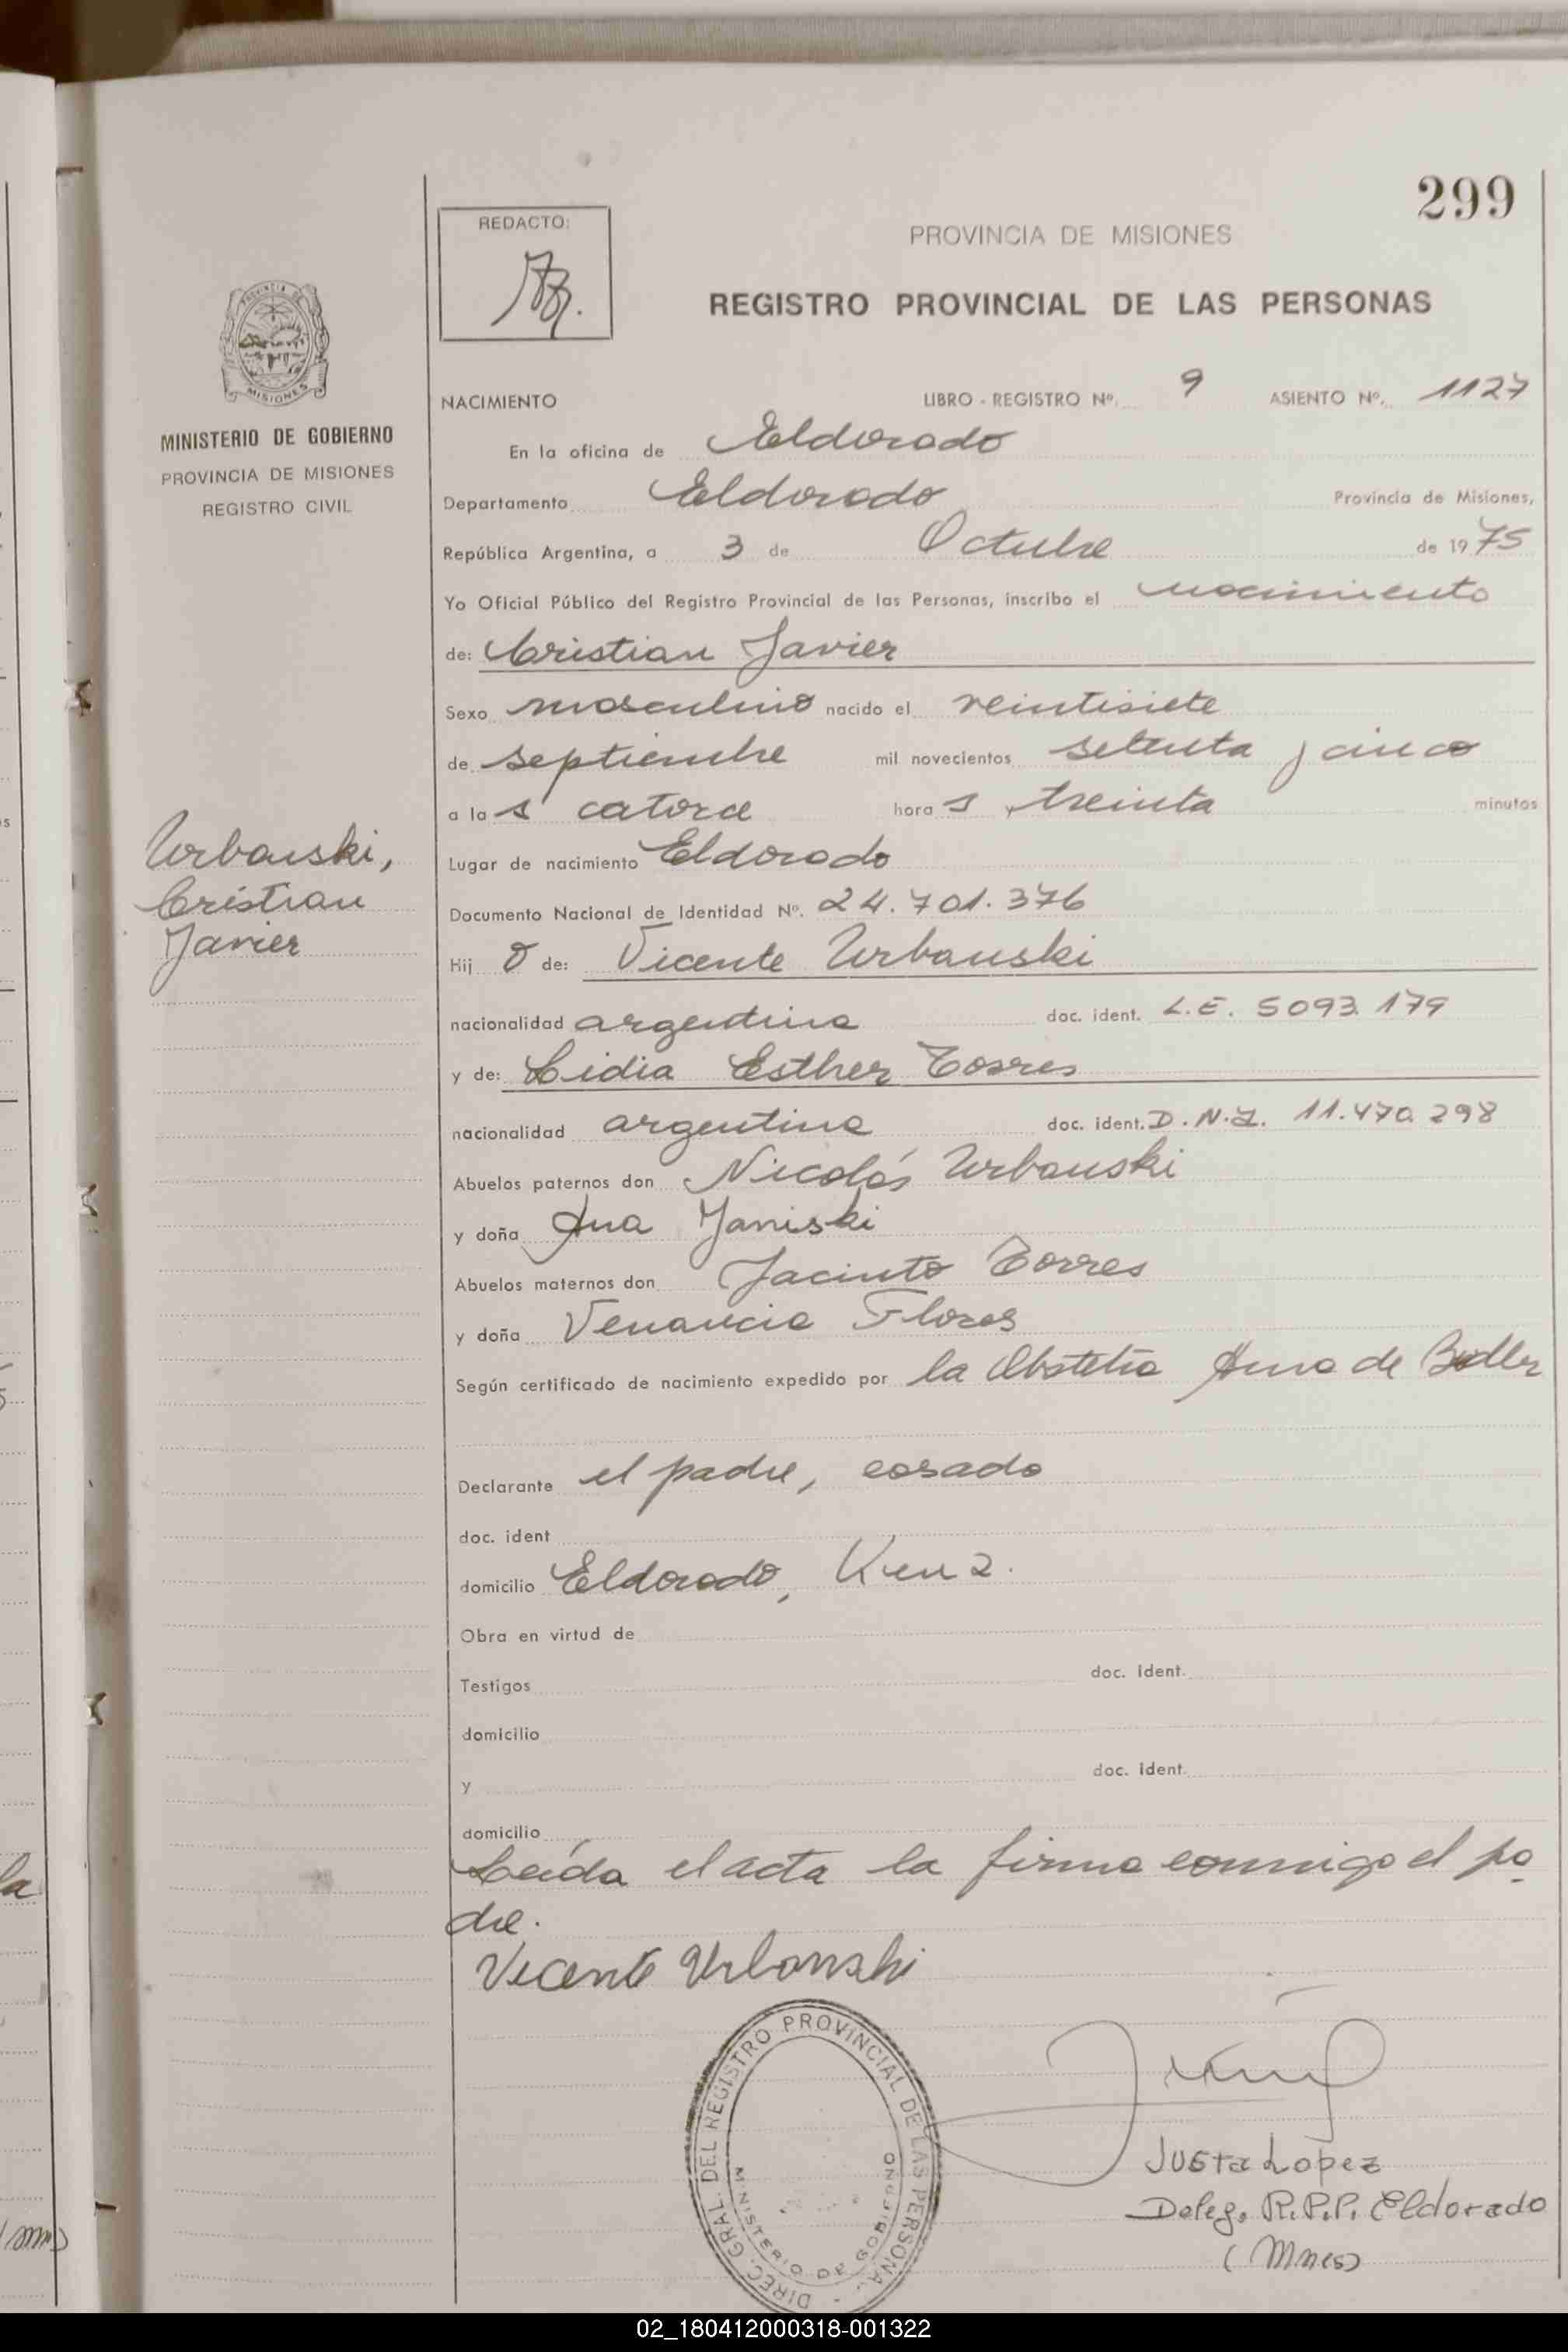 299
REDACTO:
PROVINCIA DE MISIONES
REGISTRO PROVINCIAL DE LAS PERSONAS
PROVINCIA DE
MISIONES
MINISTERIO DE GOBIERNO
PROVINCIA DE MISIONES
REGISTRO CIVIL
Urbanski,
Cristian
Javier
NACIMIENTO LIBRO - REGISTRO Nº. 9 ASIENTO Nº. 1127
En la oficina de Eldorado
Departamento Eldorado Provincia de Misiones,
República Argentina, a 3 de Octubre de 1975
Yo Oficial Público del Registro Provincial de las Personas, inscribo el nacimiento
de: Cristian Javier
Sexo masculino nacido el veintisiete
de septiembre mil novecientos setenta y cinco
a las catorce horas y treinta minutos
Lugar de nacimiento Eldorado
Documento Nacional de Identidad Nº. 24.701.376
Hijo de: Vicente Urbanski
nacionalidad argentina doc. ident. L.E. 5093.179
y de: Lidia Esther Torres
nacionalidad argentina doc. ident. D.N.I. 11.470.298
Abuelos paternos don Nicolás Urbanski
y doña Ana Janiski
Abuelos maternos don Jacinto Torres
y doña Venancia Flores
Según certificado de nacimiento expedido por la de
Declarante el padre, casado
doc. ident
domicilio Eldorado, Km 2.
Obra en virtud de
Testigos doc. ident.
domicilio
y doc. ident.
domicilio
Leída el acta la firma conmigo el pa-
dre.
Vicente Urbanski
DIREC. GRAL. DEL REGISTRO PROVINCIAL DE LAS PERSONAS
MINISTERIO DE GOBIERNO
Justa Lopez
Deleg. R.P.P. Eldorado
(Mnes)
la
02_180412000318-001322